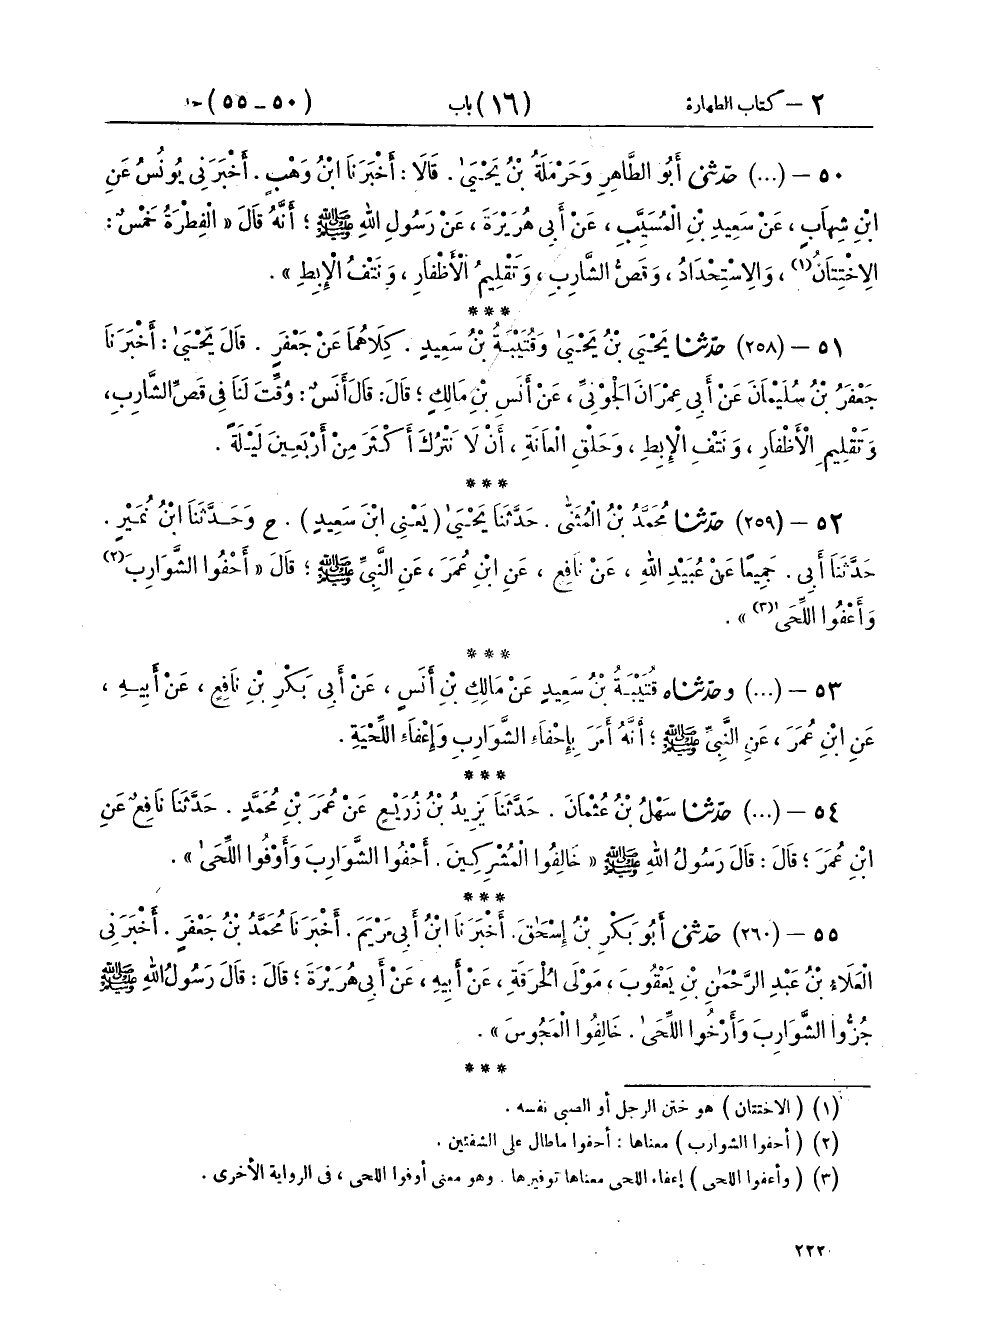 ٢ – كتاب الطهارة (١٦) باب (٥٠ – ٥٥) ح
٥٠ – (...) حدّثني أَبُو الطَّاهِرِ وَحَرْمَلَةُ بْنُ يَحْيَىٰ . قَالَا : أَخْبَرَنَا ابْنُ وَهْبٍ . أَخْبَرَنِي يُونُسُ عَنِ
ابْنِ شِهَابٍ ، عَنْ سَعِيدِ بْنِ الْمُسَيَّبِ ، عَنْ أَبِي هُرَيْرَةَ ، عَنْ رَسُولِ اللهِ ﷺ ؛ أَنَّهُ قَالَ « الْفِطْرَةُ خَمْسٌ :
الِاخْتِتَانُ(١) ، وَالِاسْتِحْدَادُ ، وَقَصُّ الشَّارِبِ ، وَتَقْلِيمُ الْأَظْفَارِ ، وَنَتْفُ الْإِبِطِ » .
***
٥١ – (٢٥٨) حدّثنا يَحْيَى بْنُ يَحْيَىٰ وَقُتَيْبَةُ بْنُ سَعِيدٍ . كِلَاهُمَا عَنْ جَعْفَرٍ . قَالَ يَحْيَىٰ : أَخْبَرَنَا
جَعْفَرُ بْنُ سُلَيْمَانَ عَنْ أَبِي عِمْرَانَ الْجَوْنِيِّ ، عَنْ أَنَسِ بْنِ مَالِكٍ ؛ قَالَ : قَالَ أَنَسٌ : وُقِّتَ لَنَا فِي قَصِّ الشَّارِبِ ،
وَتَقْلِيمِ الْأَظْفَارِ ، وَنَتْفِ الْإِبِطِ ، وَحَلْقِ الْعَانَةِ ، أَنْ لَا نَتْرُكَ أَكْثَرَ مِنْ أَرْبَعِينَ لَيْلَةً .
***
٥٢ – (٢٥٩) حدّثنا مُحَمَّدُ بْنُ الْمُثَنَّىٰ . حَدَّثَنَا يَحْيَىٰ ( يَعْنِي ابْنَ سَعِيدٍ ) . ح وَحَدَّثَنَا ابْنُ نُمَيْرٍ .
حَدَّثَنَا أَبِي . جَمِيعًا عَنْ عُبَيْدِ اللهِ ، عَنْ نَافِعٍ ، عَنِ ابْنِ عُمَرَ ، عَنِ النَّبِيِّ ﷺ ؛ قَالَ « أَحْفُوا الشَّوَارِبَ(٢)
وَأَعْفُوا اللِّحَىٰ(٣) » .
***
٥٣ – (...) وحدّثناه قُتَيْبَةُ بْنُ سَعِيدٍ عَنْ مَالِكِ بْنِ أَنَسٍ ، عَنْ أَبِي بَكْرِ بْنِ نَافِعٍ ، عَنْ أَبِيهِ ،
عَنِ ابْنِ عُمَرَ ، عَنِ النَّبِيِّ ﷺ ؛ أَنَّهُ أَمَرَ بِإِحْفَاءِ الشَّوَارِبِ وَإِعْفَاءِ اللِّحْيَةِ .
***
٥٤ – (...) حدّثنا سَهْلُ بْنُ عُثْمَانَ . حَدَّثَنَا يَزِيدُ بْنُ زُرَيْعٍ عَنْ عُمَرَ بْنِ مُحَمَّدٍ . حَدَّثَنَا نَافِعٌ عَنِ
ابْنِ عُمَرَ ؛ قَالَ : قَالَ رَسُولُ اللهِ ﷺ « خَالِفُوا الْمُشْرِكِينَ . أَحْفُوا الشَّوَارِبَ وَأَوْفُوا اللِّحَىٰ » .
***
٥٥ – (٢٦٠) حدّثني أَبُو بَكْرِ بْنُ إِسْحَاقَ . أَخْبَرَنَا ابْنُ أَبِي مَرْيَمَ . أَخْبَرَنَا مُحَمَّدُ بْنُ جَعْفَرٍ . أَخْبَرَنِي
الْعَلَاءُ بْنُ عَبْدِ الرَّحْمَٰنِ بْنِ يَعْقُوبَ ، مَوْلَى الْحُرَقَةِ ، عَنْ أَبِيهِ ، عَنْ أَبِي هُرَيْرَةَ ؛ قَالَ : قَالَ رَسُولُ اللهِ ﷺ
جُزُّوا الشَّوَارِبَ وَأَرْخُوا اللِّحَىٰ . خَالِفُوا الْمَجُوسَ » .
***
(١) ( الاختتان ) هو ختن الرجل أو الصبي نفسه .
(٢) ( أحفوا الشوارب ) معناها : أحفوا ماطال على الشفتين .
(٣) ( وأعفوا اللحى ) إعفاء اللحى معناها توفيرها . وهو معنى أوفوا اللحى ، في الرواية الأخرى .
٢٢٢